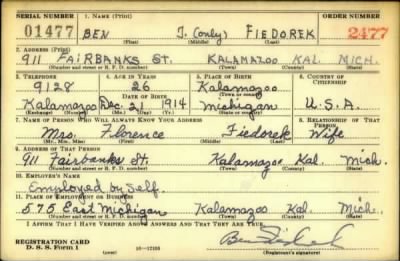 SERIAL NUMBER 1. NAME (Print) ORDER NUMBER
01477 BEN J. (only) FIEDOREK 2477
(First) (Middle) (Last)
2. ADDRESS (Print)
911 FAIRBANKS ST. KALAMAZOO KAL. MICH.
(Number and street or R. F. D. number) (Town) (County) (State)
3. TELEPHONE 4. AGE IN YEARS 5. PLACE OF BIRTH 6. COUNTRY OF CITIZENSHIP
9128 26 Kalamazoo
DATE OF BIRTH (Town or county)
Kalamazoo Dec. 21 1914 Michigan U.S.A.
(Exchange) (Number) (Mo.) (Day) (Yr.) (State or country)
7. NAME OF PERSON WHO WILL ALWAYS KNOW YOUR ADDRESS 8. RELATIONSHIP OF THAT PERSON
Mrs. Florence Fiedorek Wife
(Mr., Mrs., Miss) (First) (Middle) (Last)
9. ADDRESS OF THAT PERSON
911 Fairbanks St. Kalamazoo Kal. Mich.
(Number and street or R. F. D. number) (Town) (County) (State)
10. EMPLOYER'S NAME
Employed by Self.
11. PLACE OF EMPLOYMENT OR BUSINESS
575 East Michigan Kalamazoo Kal. Mich.
(Number and street or R. F. D. number) (Town) (County) (State)
I AFFIRM THAT I HAVE VERIFIED ABOVE ANSWERS AND THAT THEY ARE TRUE.
REGISTRATION CARD
D. S. S. Form 1 (over) Ben Fiedorek
(Registrant's signature)